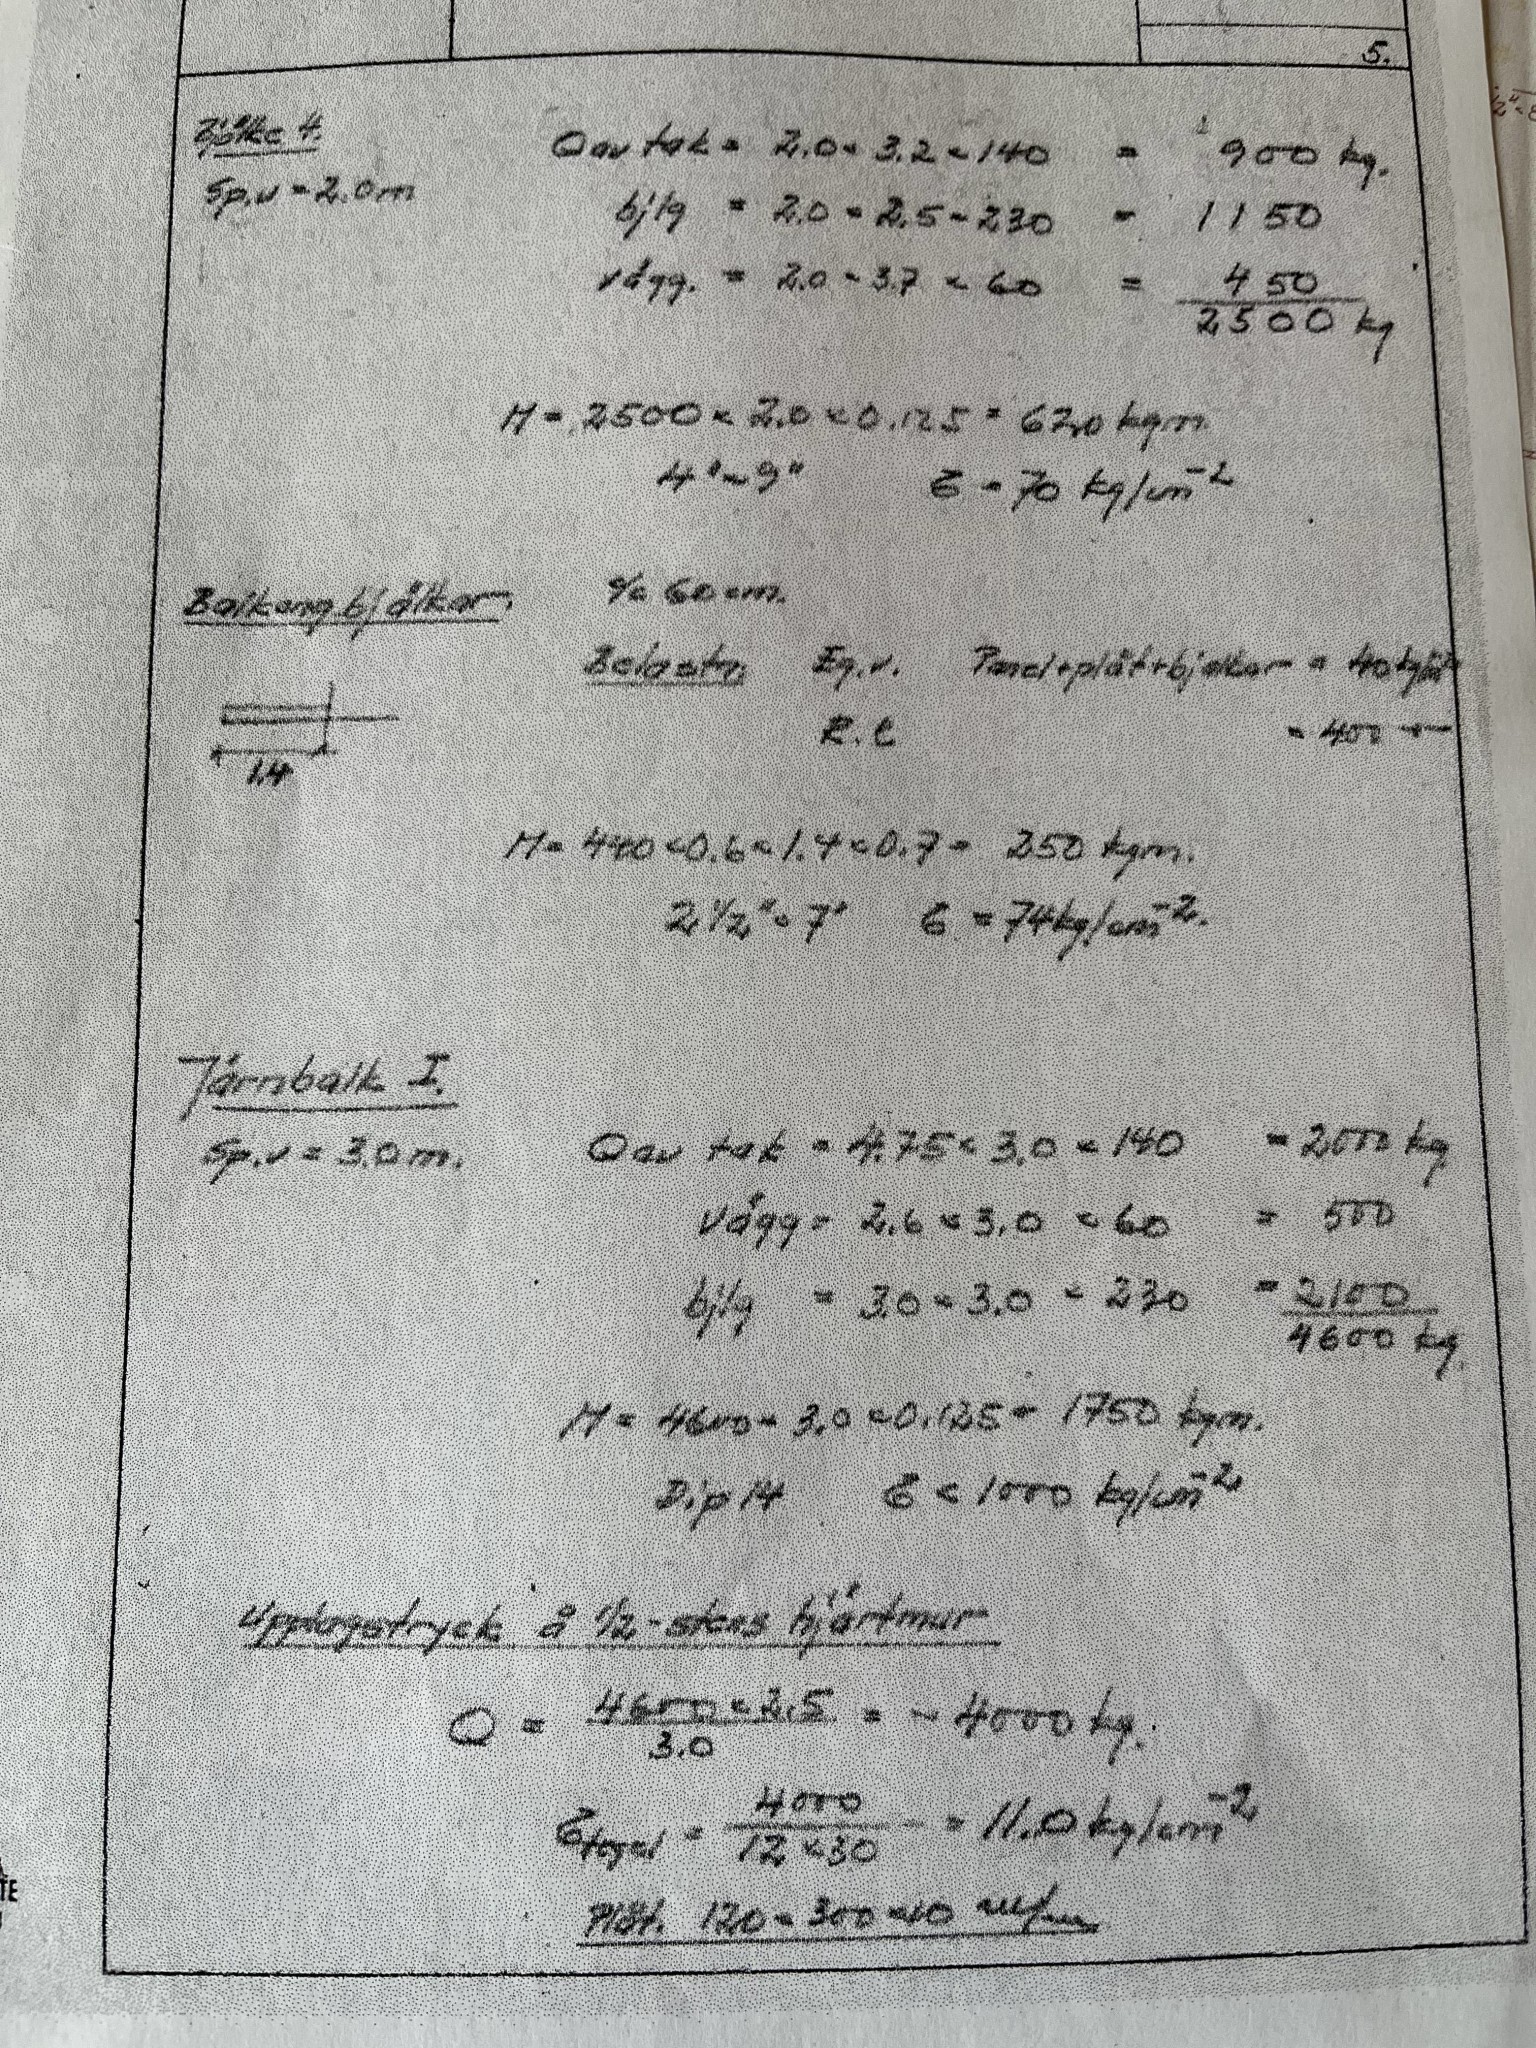 5.
Bjälke 4.
Sp.v = 2.0m
Q av tak = 2.0 × 3.2 × 140 = 900 kg.
bjlg = 2.0 × 2.5 × 230 = 1150
vägg. = 2.0 × 3.7 × 60 = 450
2500 kg
M = 2500 × 2.0 × 0.125 = 620 kgm.
4" × 9" σ = 70 kg/cm⁻²
Balkongbjälkar. c/c 60 cm.
Belastn. Eg.v. Panel+plåt+bjälkar = 40 kg/m²
R.l = 400 —"—
1.4
M = 440 × 0.6 × 1.4 × 0.7 = 250 kgm.
2 1/2" × 7" σ = 74 kg/cm⁻².
Järnbalk I.
Sp.v = 3.0 m.
Q av tak = 4.75 × 3.0 × 140 = 2000 kg
Vägg = 2.6 × 3.0 × 60 = 500
bjlg = 3.0 × 3.0 × 230 = 2100
4600 kg.
M = 4600 × 3.0 × 0.125 = 1750 kgm.
Dip 14 σ < 1000 kg/cm⁻²
Upplagstryck å 1/2-stens hjärtmur
Q = 4600 × 2.5 / 3.0 = ~ 4000 kg.
σ tegel = 4000 / 12 × 30 = 11.0 kg/cm⁻²
Plåt. 120 × 300 × 10
TE